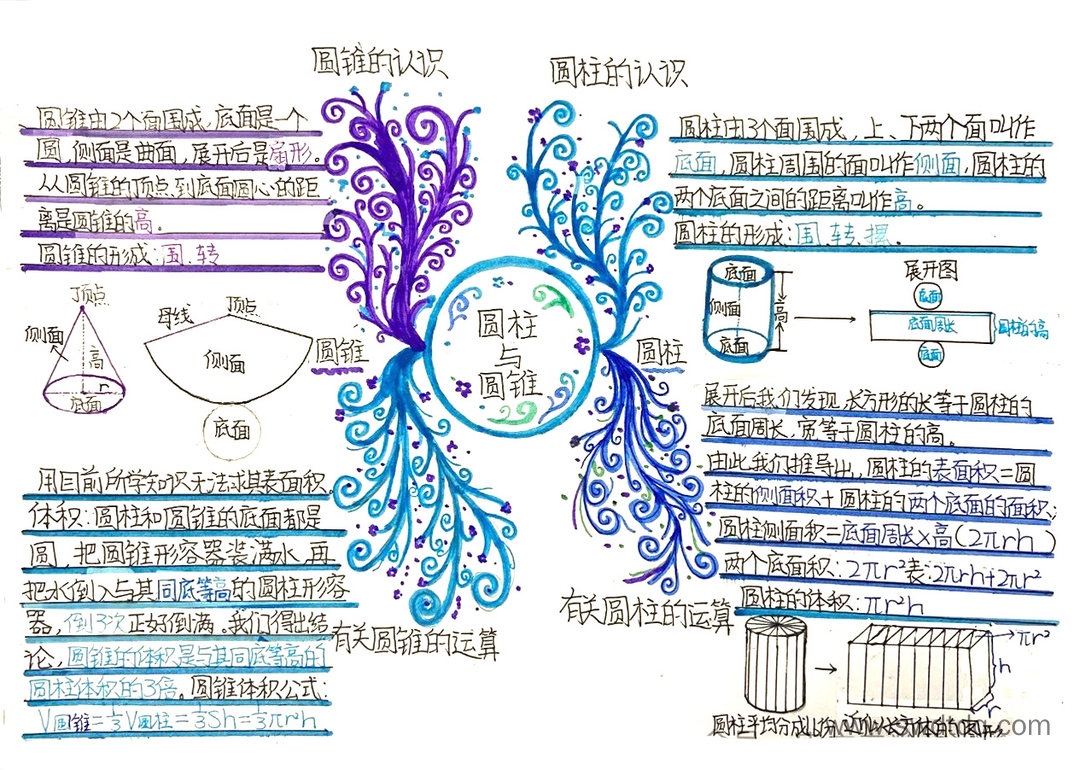 圆锥的认识
圆锥由2个面围成,底面是一个
圆,侧面是曲面,展开后是扇形。
从圆锥的顶点到底面圆心的距
离是圆锥的高。
圆锥的形成:围、转
顶点
侧面
高
r
底面
母线
顶点
侧面
底面
圆锥
用目前所学知识无法求其表面积。
体积:圆柱和圆锥的底面都是
圆,把圆锥形容器装满水,再
把水倒入与其同底等高的圆柱形容
器,倒3次正好倒满。我们得出结
论,圆锥的体积是与其同底等高的
圆柱体积的3倍。圆锥体积公式:
V圆锥=1/3V圆柱=1/3Sh=1/3πr²h
有关圆锥的运算
圆柱
与
圆锥
圆柱的认识
圆柱由3个面围成,上、下两个面叫作
底面,圆柱周围的面叫作侧面,圆柱的
两个底面之间的距离叫作高。
圆柱的形成:围、转、摞。
底面
侧面
高
底面
展开图
底面
底面周长
圆柱的高
底面
圆柱
展开后我们发现,长方形的长等于圆柱的
底面周长,宽等于圆柱的高。
由此我们推导出,圆柱的表面积=圆
柱的侧面积+圆柱的两个底面的面积;
圆柱侧面积=底面周长×高(2πrh)
两个底面积:2πr²表:2πrh+2πr²
圆柱的体积:πr²h
有关圆柱的运算
πr²
h
r
圆柱平均分成16份 近似长方体的